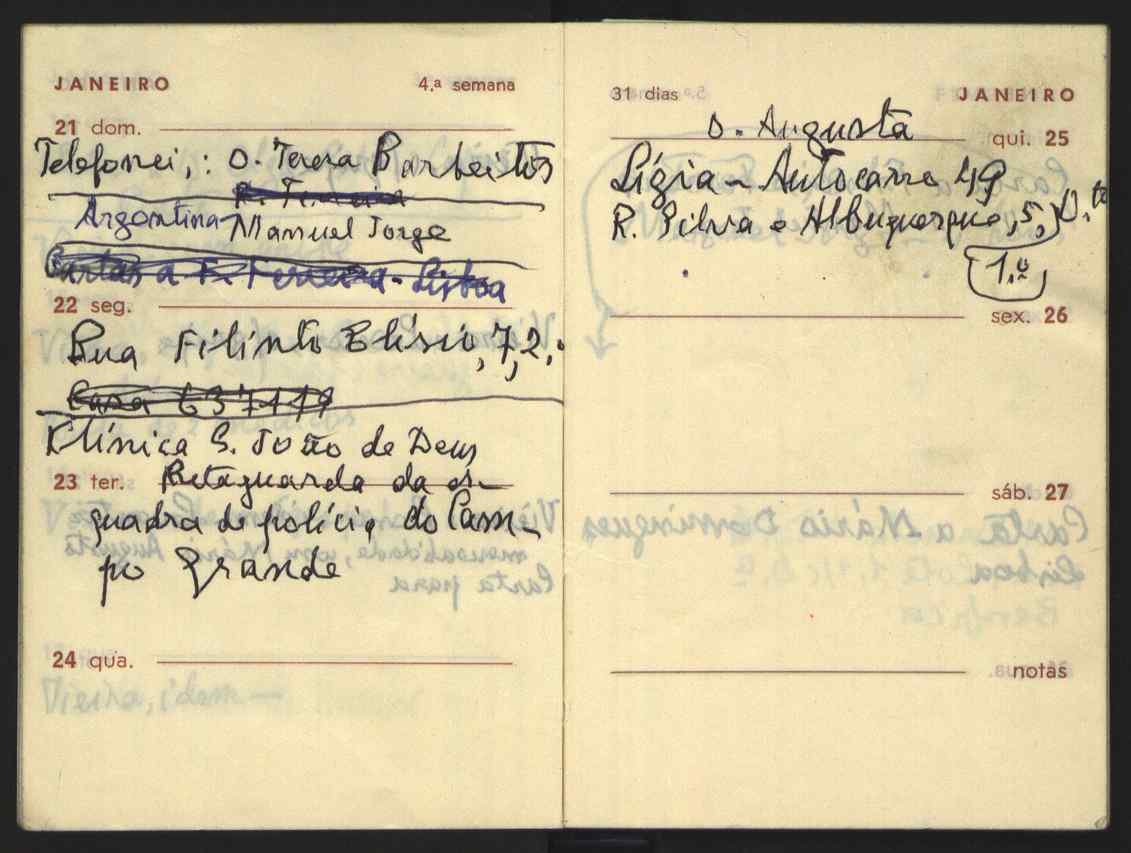 JANEIRO 4.ª semana
21 dom.
Telefonei,: D. Teresa Barbeitos
R. Ferreira
Argentina - Manuel Jorge
Cartas a F. Ferreira - Lisboa
22 seg.
Rua Filinto Elísio, 7, 2.º
Casa 637119
Clínica S. João de Deus
23 ter. Retaguarda da es-
quadra de polícia do Cam-
po Grande
24 qua.
31 dias JANEIRO
D. Augusta
qui. 25
Lígia - Autocarro 49
R. Silva e Albuquerque, 5, D.to
1.º
sex. 26
sáb. 27
notas